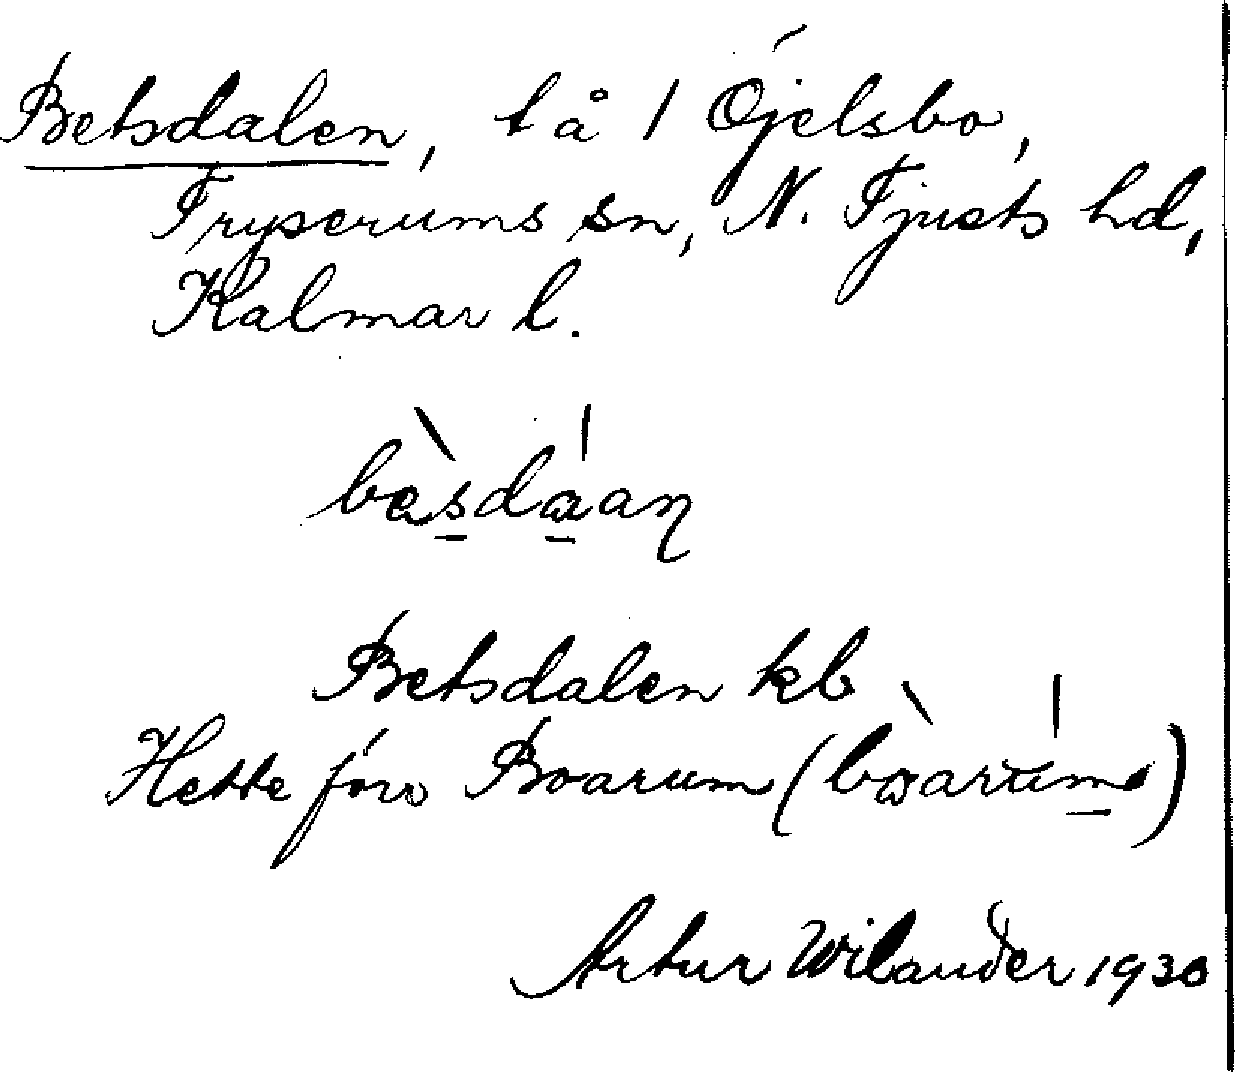 Betsdalen, lå / Öjelsbo,
Tryserums sn, N. Tjusts hd,
Kalmar l.
bèsdáan
Betsdalen kb
Hette förr Boarum (bòarúm)
Artur Wilander 1930